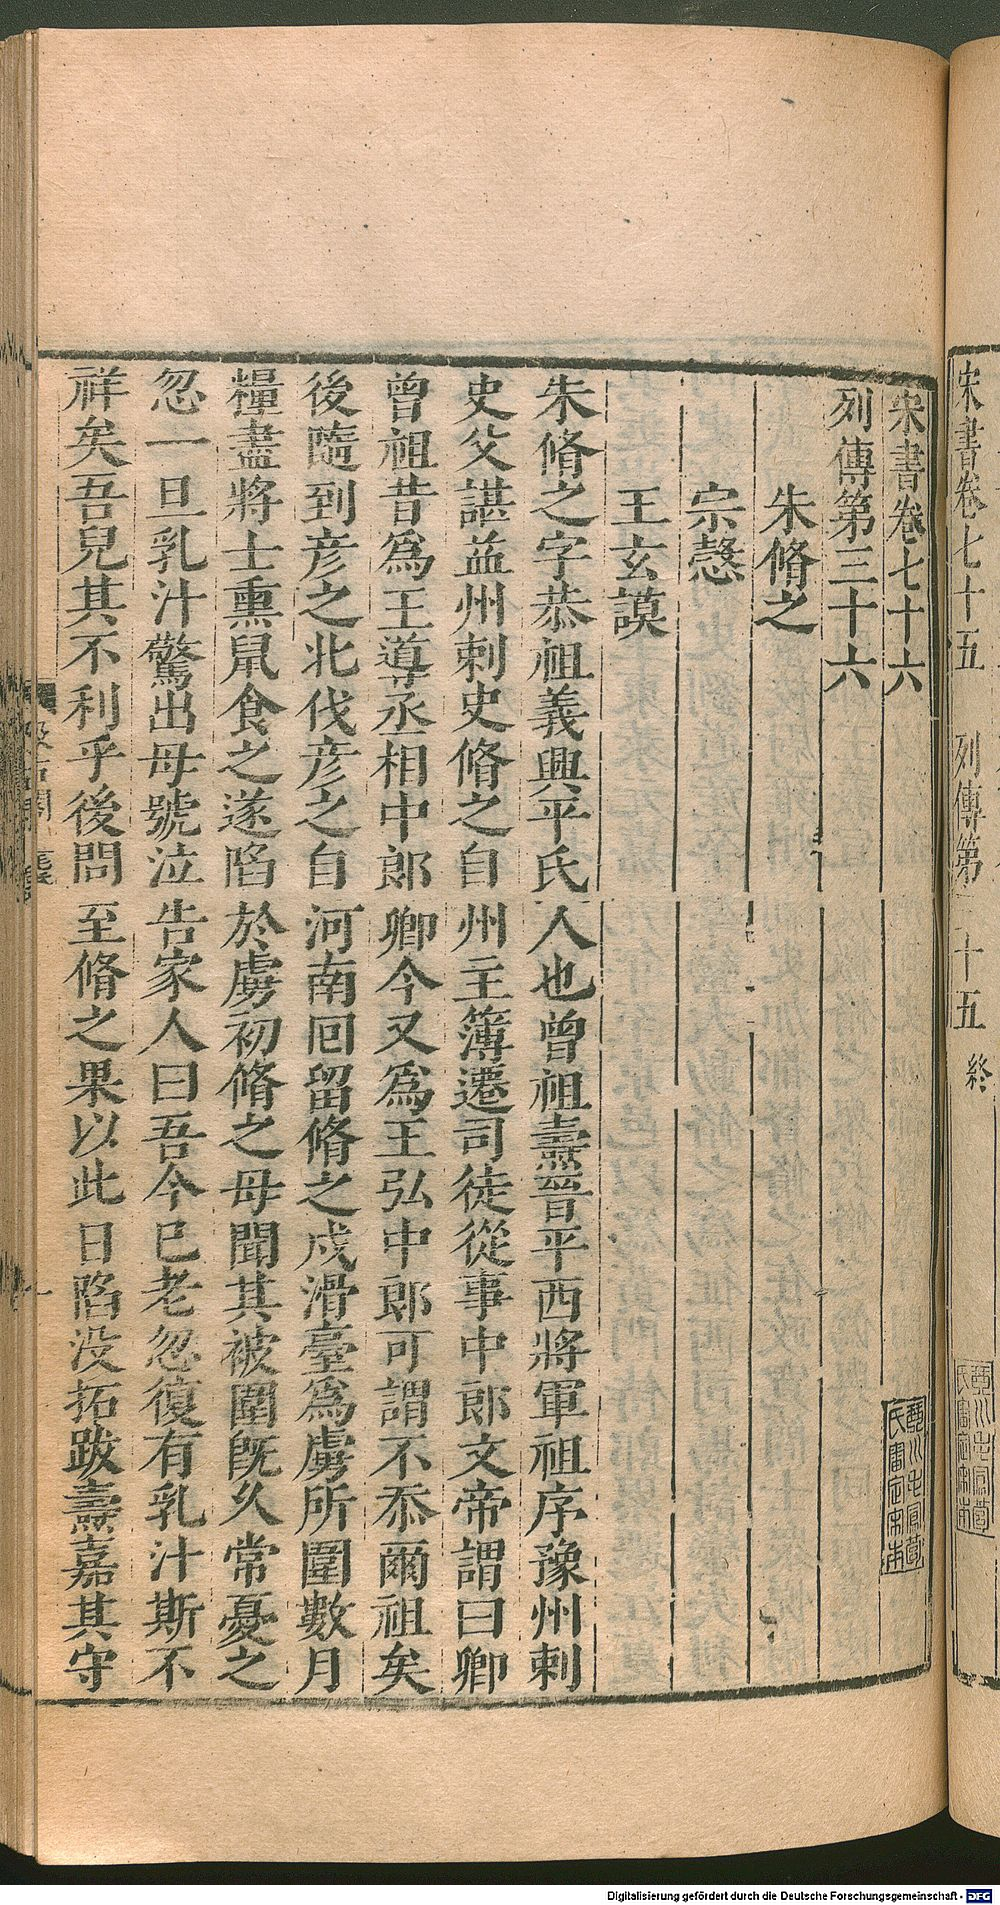 宋書卷七十五　列傳第三十五　終
宋書卷七十六
列傳第三十六
朱脩之
宗慤
王玄謨
朱脩之字恭祖義興平氏人也曾祖燾晉平西將軍祖序豫州刺
史父諶益州刺史脩之自州主簿遷司徒從事中郎文帝謂曰卿
曾祖昔爲王導丞相中郎卿今又爲王弘中郎可謂不忝爾祖矣
後隨到彥之北伐彥之自河南囘留脩之戍滑臺爲虜所圍數月
糧盡將士熏鼠食之遂陷於虜初脩之母聞其被圍旣久常憂之
忽一旦乳汁驚出母號泣告家人曰吾今已老忽復有乳汁斯不
祥矣吾兒其不利乎後問至脩之果以此日陷没拓跋燾嘉其守
Digitalisierung gefördert durch die Deutsche Forschungsgemeinschaft - DFG